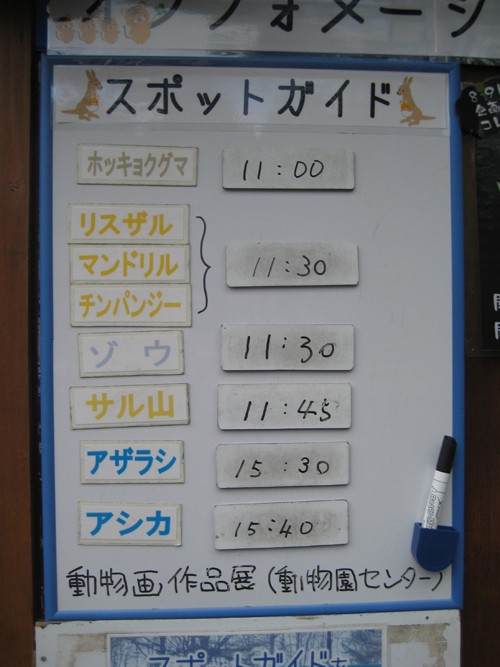 インフォメーシ
スポットガイド
ホッキョクグマ 11:00
リスザル
マンドリル 11:30
チンパンジー
ゾウ 11:30
サル山 11:45
アザラシ 15:30
アシカ 15:40
動物画作品展(動物園センター)
スポットガイドを